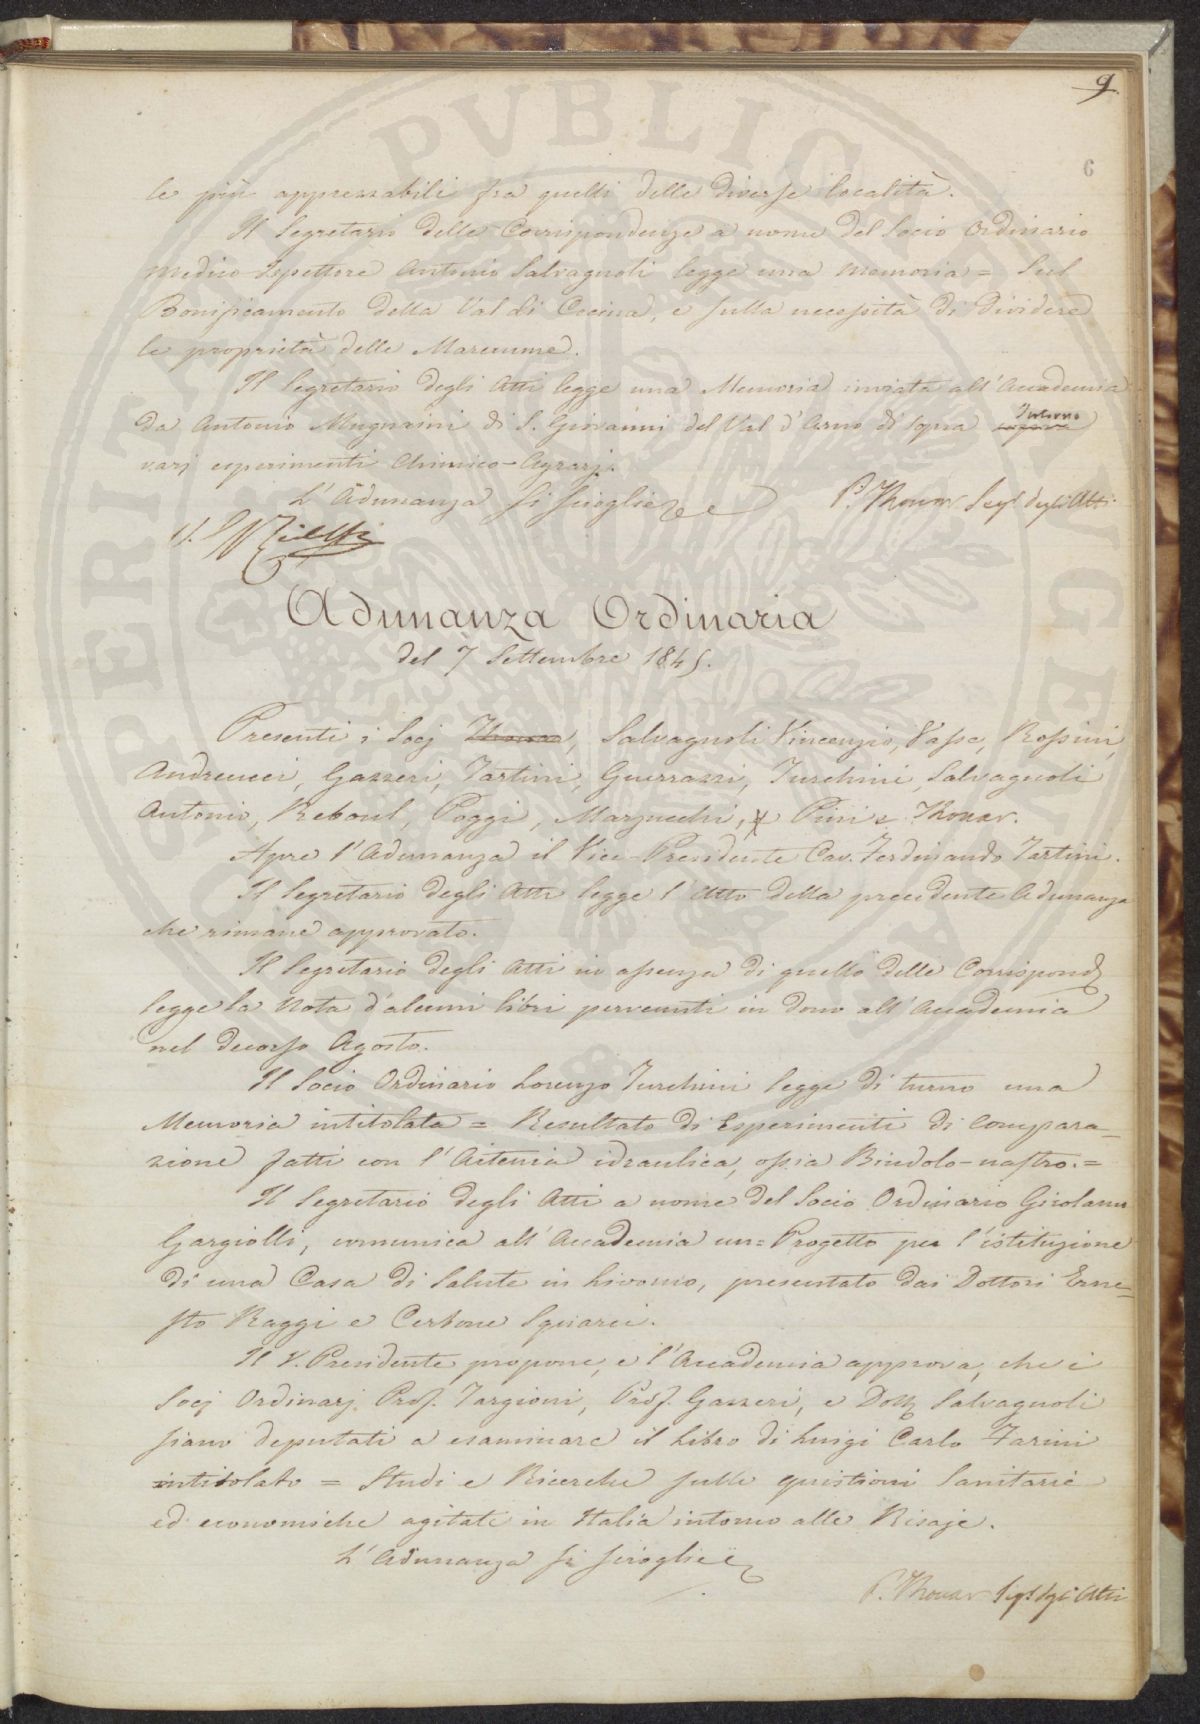 9
6
le più apprezzabili fra quelli delle diverse località.
Il Segretario delle Corrispondenze a nome del Socio Ordinario
Medico-Ispettore Antonio Salvagnoli legge una Memoria = Sul
Bonificamento della Val di Cecina, e sulla necessità di dividere
le proprietà delle Maremme.
Il Segretario degli Atti legge una Memoria inviata all'Accademia
da Antonio Mugnaini di S. Giovanni del Val d'Arno di Sopra Intorno
varj esperimenti Chimico-Agrarj.
L'Adunanza si scioglie
P. Thouar Seg.o degli Atti
V.
Adunanza Ordinaria
del 7 Settembre 1845.
Presenti i Socj Thouar, Salvagnoli Vincenzio, Vasse, Rossini,
Andreucci, Gazzeri, Tartini, Guerrazzi, Turchini, Salvagnoli
Antonio, Reboul, Poggi, Marzucchi, Piri e Thouar.
Apre l'Adunanza il Vice-Presidente Cav. Ferdinando Tartini.
Il Segretario degli Atti legge l'Atto della precedente Adunanza
che rimane approvato.
Il Segretario degli Atti in assenza di quello delle Corrispond
legge la Nota d'alcuni libri pervenuti in dono all'Accademia
nel decorso Agosto.
Il Socio Ordinario Lorenzo Turchini legge di turno una
Memoria intitolata = Resultato di Esperimenti di Compara-
zione fatti con l'Artemia idraulica, ossia Bindolo-nastro. =
Il Segretario degli Atti a nome del Socio Ordinario Girolamo
Gargiolli, comunica all'Accademia un = Progetto per l'istituzione
di una Casa di Salute in Livorno, presentato dai Dottori Erne=
sto Raggi e Cerbone Squarci.
Il V. Presidente propone, e l'Accademia approva, che i
Socj Ordinarj Prof. Targioni, Prof. Gazzeri, e Dott Salvagnoli
siano deputati a esaminare il Libro di Luigi Carlo Farini
intitolato = Studi e Ricerche sulle quistioni Sanitarie
ed economiche agitate in Italia intorno alle Risaje.
L'Adunanza si scioglie
P. Thouar Seg.o degli Atti